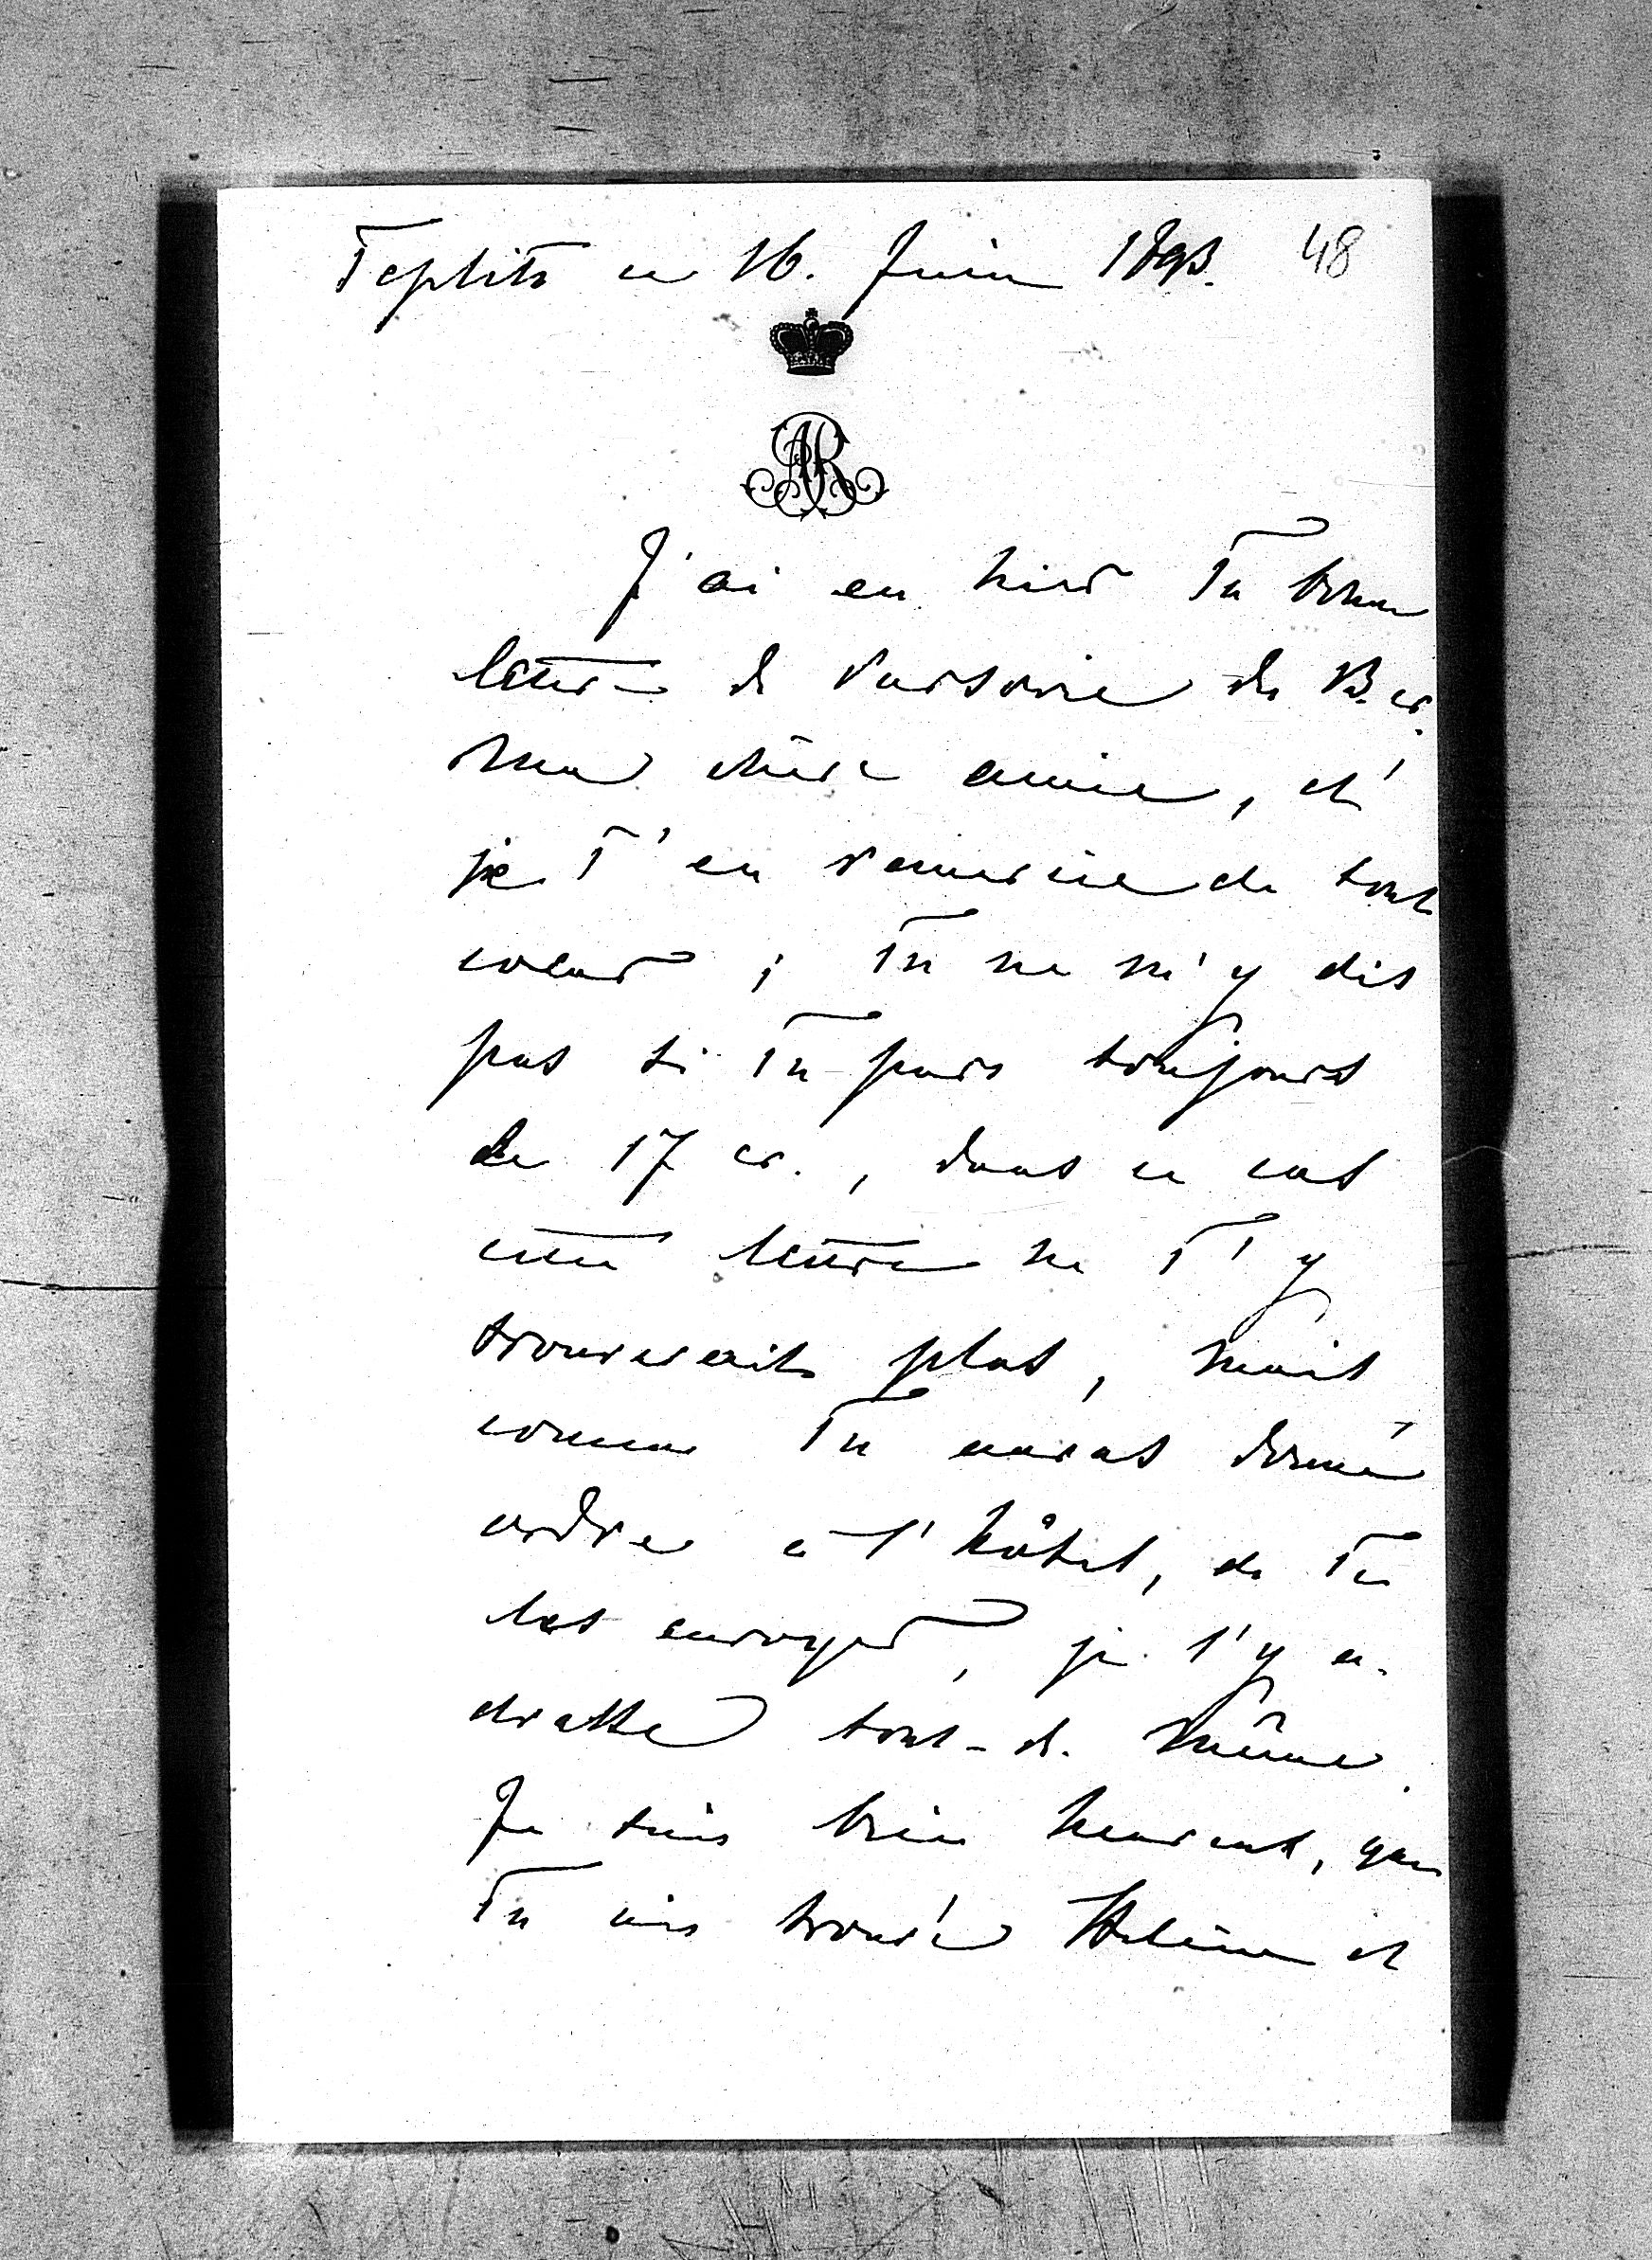 Teplitz ce 16. Juin 1893. 48
AR
J'ai eu hier Ta bonne
lettre de Varsovie du 13. cr.
ma chère amie, et
je T'en remercie de tout
coeur; Tu ne m'y dis
pas si Tu pars toujours
le 17 cr., dans ce cas
cette lettre ne T'y
trouverait plus, mais
comme Tu auras donné
ordre à l'hôtel, de Te
les envoyer, je l'y a-
dresse tout-de même.
Je suis bien heureux, que
Tu aies trouvé Hélène et